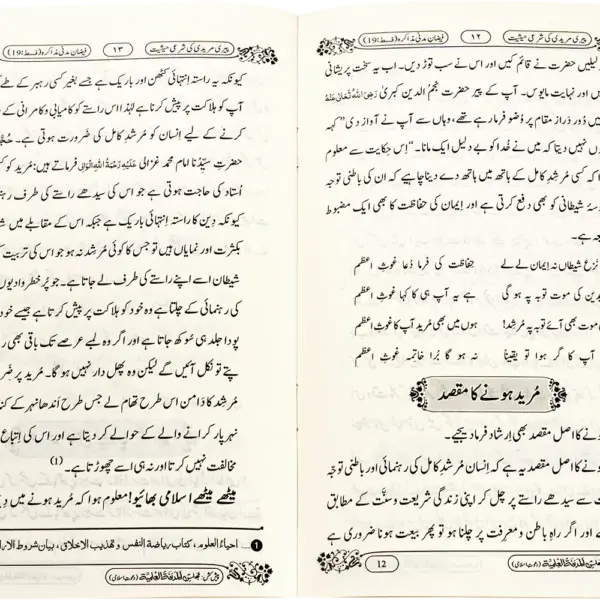 پیری مریدی کی شرعی حیثیت ۱۲ فیضانِ مدنی مذاکرہ (قسط:19)
لیلیں حضرت نے قائم کیں اور اس نے سب توڑ دیں۔ اب یہ سخت پریشانی
اور نہایت مایوس۔ آپ کے پیر حضرت نجم الدین کبریٰ رَضِیَ اللهُ تَعَالٰی عَنْهُ
میں دُور دَراز مقام پر وُضو فرما رہے تھے، وہاں سے آپ نے آواز دی ”کہہ
وں نہیں دیتا کہ میں نے خُدا کو بے دلیل ایک مانا۔“ اِس حِکایت سے معلوم
ا کہ کسی مُرشدِ کامل کے ہاتھ میں ہاتھ دے دینا چاہیے کہ ان کی باطنی توجہ
وسۂ شیطانی کو بھی دفع کرتی ہے اور اِیمان کی حفاظت کا بھی ایک مضبوط
جہ ہے۔
نَزع شیطاں نہ اِیمان لے لے حفاظت کی فرما دُعا غوثِ اعظم
دین کی موت توبہ پہ ہو گی ہے یہ آپ ہی کا کہا غوثِ اعظم
موت بھی آئے توبہ پہ مُرشد! ہوں میں بھی مُرید آپ کا غوثِ اعظم
آپ کا گر ہوا تو یقیناً نہ ہو گا بُرا خاتمہ غوثِ اعظم
مُرید ہونے کا مقصد
ونے کا اصل مقصد بھی اِرشاد فرما دیجیے۔
ونے کا اصل مقصد یہ ہے کہ اِنسان مُرشدِ کامل کی رہنمائی اور باطنی توجّہ
ت سے سیدھے راستے پر چل کر اپنی زندگی شریعت و سنَّت کے مطابق
ے اور اگر راہِ باطن و معرفت پر چلنا ہو تو پھر بیعت ہونا ضروری ہے
12 (دعوتِ اسلامی)
پیری مریدی کی شرعی حیثیت ۱۳ فیضانِ مدنی مذاکرہ (قسط:19)
کیونکہ یہ راستہ اِنتہائی کٹھن اور باریک ہے جسے بغیر کسی رہبر کے طے
آپ کو ہلاکت پر پیش کرنا ہے لہٰذا اس راستے کو کامیابی و کامرانی کے
کرنے کے لیے اِنسان کو مُرشدِ کامل کی ضَرورت ہوتی ہے۔
حضرتِ سیِّدُنا امام محمد غزالی عَلَیْهِ رَحْمَةُ اللهِ الْوَالِی فرماتے ہیں: مُرید کو
اُستاد کی حاجت ہوتی ہے جو اس کی سیدھے راستے کی طرف
کیونکہ دِین کا راستہ اِنتہائی باریک ہے جبکہ اس کے مقابلے میں
بکثرت اور نمایاں ہیں تو جس کا کوئی مُرشد نہ ہو جو اس کی تربیت
شیطان اسے اپنے راستے کی طرف لے جاتا ہے۔ جو پُر خطر وادیوں
کی رہنمائی کے چلتا ہے وہ خود کو ہلاکت پر پیش کرتا ہے جیسے خود
پودا جلد ہی سُوکھ جاتا ہے اور اگر وہ لمبے عرصے تک باقی بھی
پتے تو نکل آئیں گے لیکن وہ پھل دار نہیں ہو گا۔ مُرید پر
مُرشد کا دَامن اس طرح تھام لے جس طرح اَندھا نہر کے
نہر پار کرانے والے کے حوالے کر دیتا ہے اور اس کی اِتّباع
مخالفت نہیں کرتا اور نہ ہی اسے چھوڑتا ہے۔ (1)
میٹھے میٹھے اسلامی بھائیو! معلوم ہوا کہ مُرید ہونے میں
1 احیاءُ العلوم، کتاب ریاضة النفس و تهذیب الاخلاق، بیان شروط
پیش کش: (دعوتِ اسلامی)